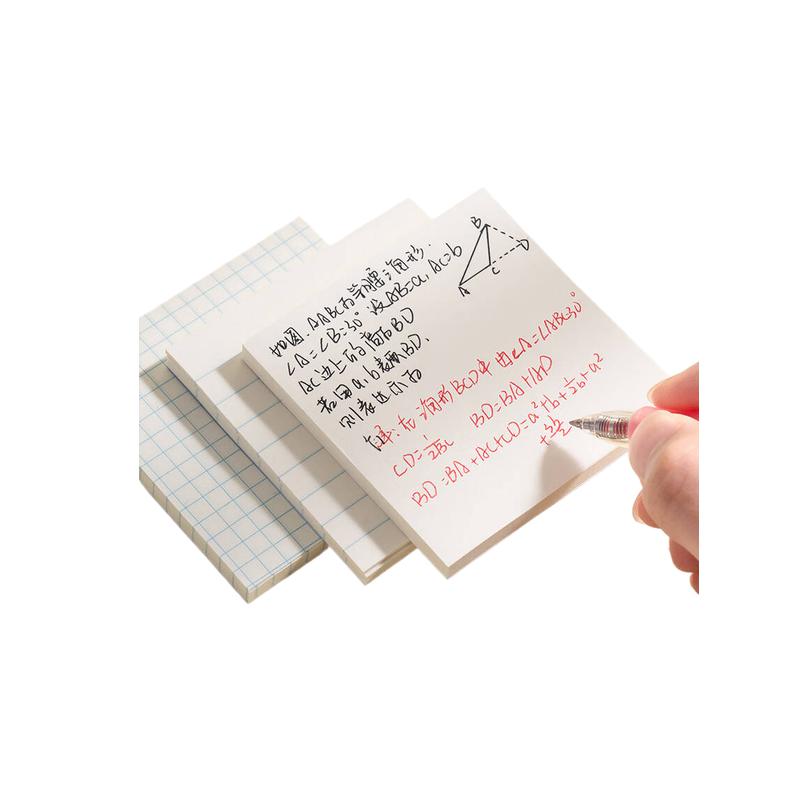 如图.△ABC为等腰三角形.
∠A=∠B=30° 设AB=a, AC=b
AC边上的高为BD
若用a,b表示BD,
则表达示为
B
D
C
A
解:在三角形BCD中 因∠A=∠ABC=30°
CD=1/2BC BD=BA+AD
BD=BA+AC+CD=a²+b+1/2b+a²